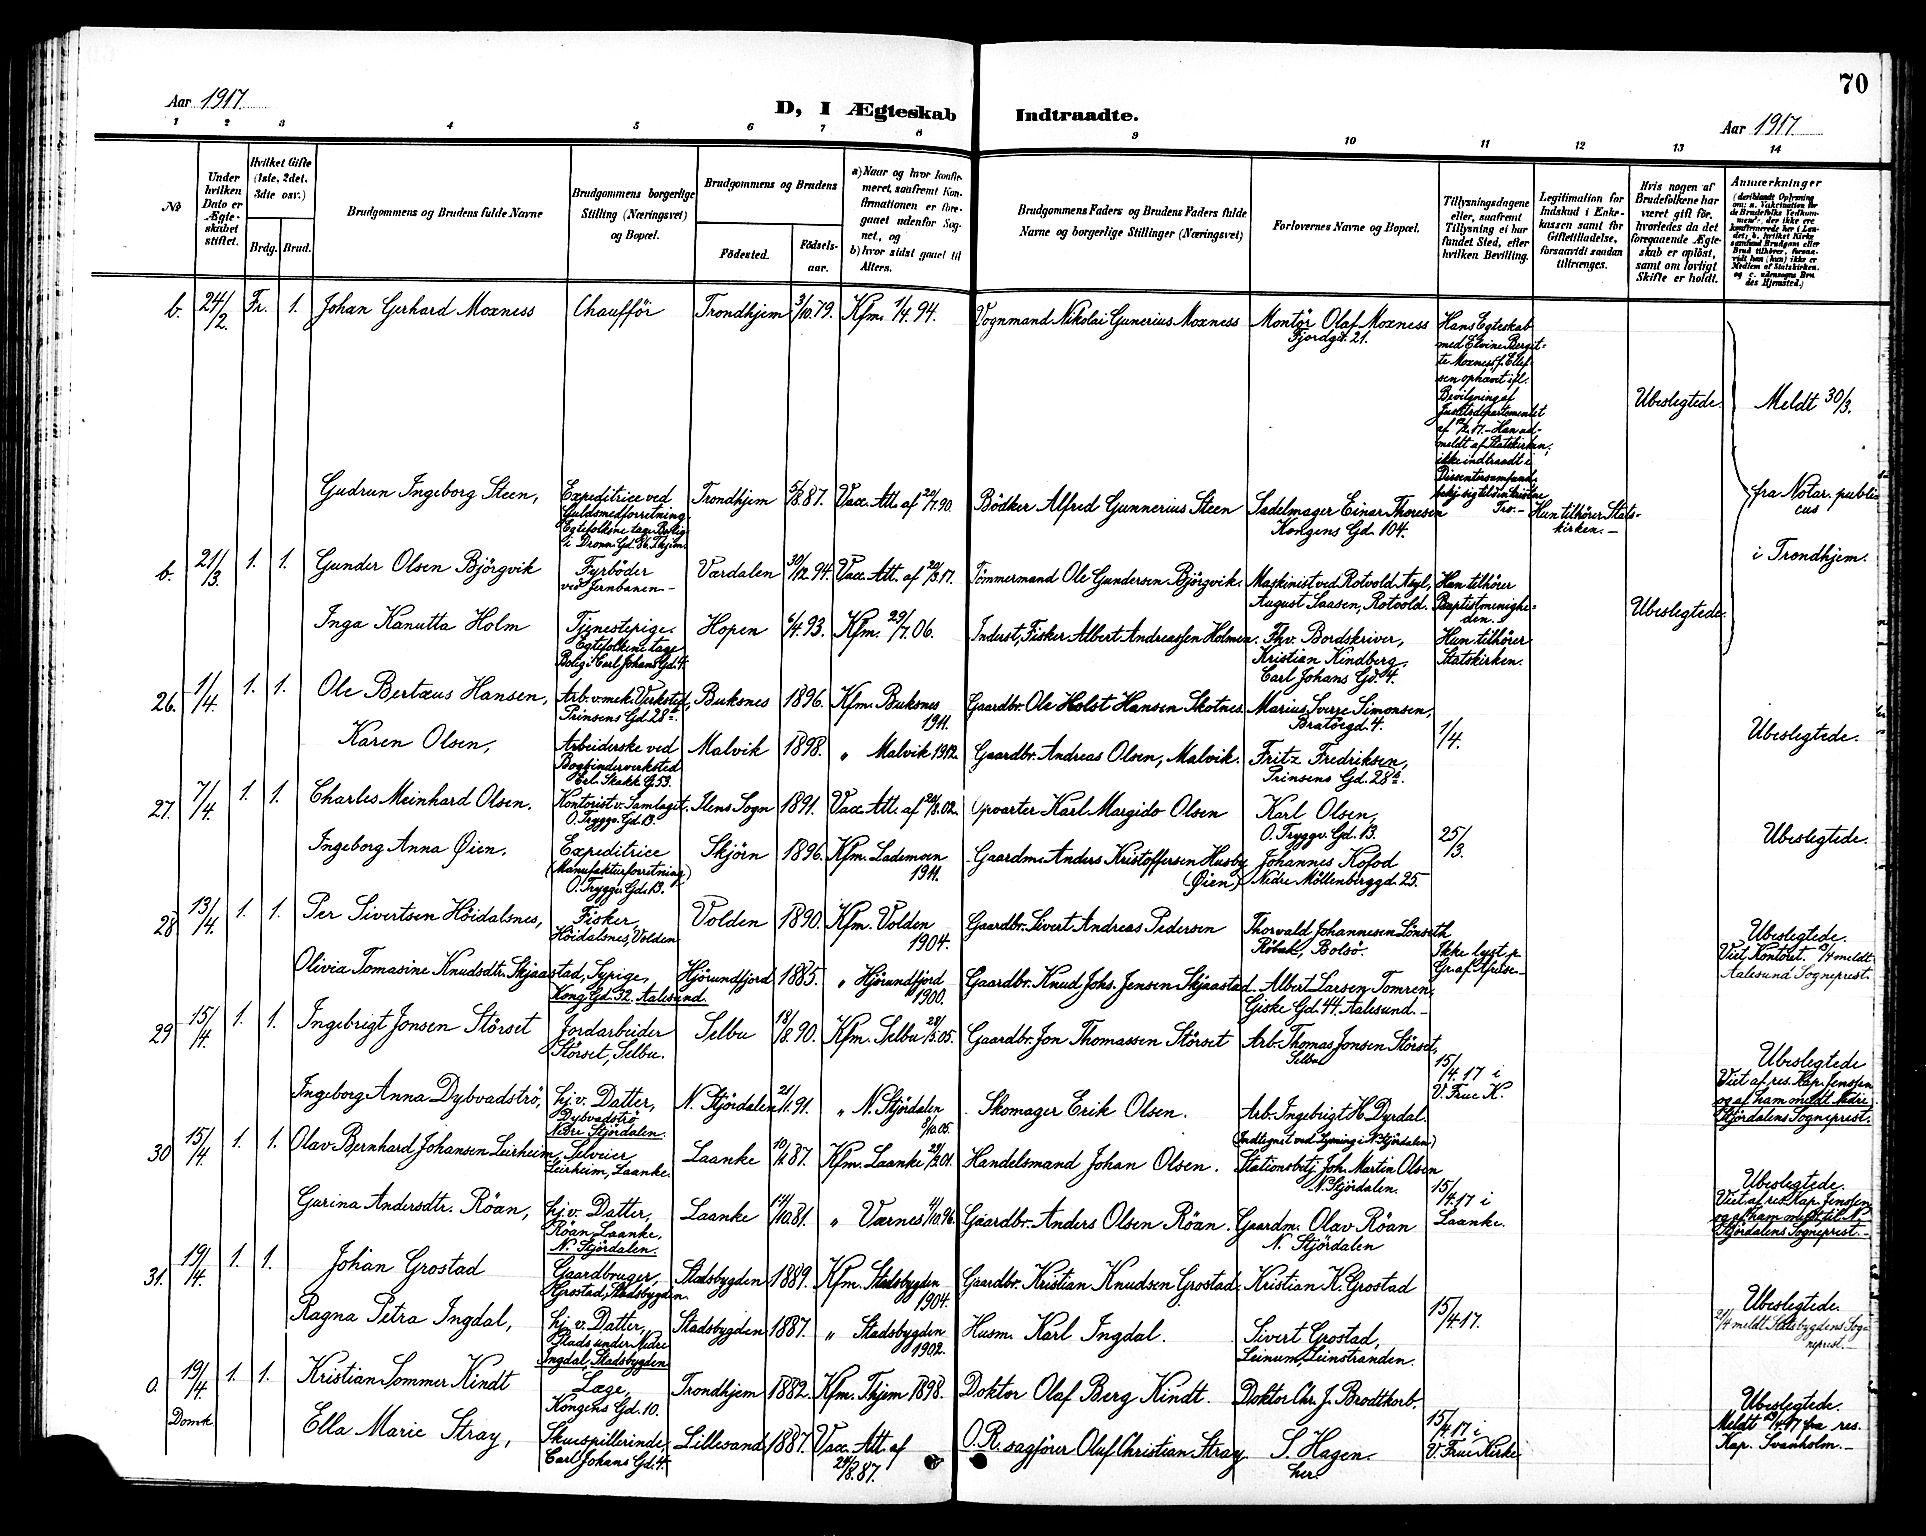 70
Aar 1917.
D, I Ægteskab Indtraadte.
Aar 1917.
1 2 3 4 5 6 7 8 9 10 11 12 13 14
No
Under hvilken Dato er Ægteskabet stiftet.
Hvilket Gifte (1ste, 2det, 3die osv.)
Brdg. Brud.
Brudgommens og Brudens fulde Navne
Brudgommens borgerlige Stilling (Næringsvei) og Bopæl.
Brudgommens og Brudens
Födested.
Födselsaar.
a) Naar og hvor konfirmeret, saafremt Konfirmationen er foregaaet udenfor Sognet, og
b) hvor sidst gaaet til Alters.
Brudgommens Faders og Brudens Faders fulde Navne og borgerlige Stillinger (Næringsvei)
Forlovernes Navne og Bopæl.
Tillysningsdagene eller, saafremt Tillysning ei har fundet Sted, efter hvilken Bevilling.
Legitimation for Indskud i Enkekassen samt for Giftetilladelse, forsaavidt saadan tiltrænges.
Hvis nogen af Brudefolkene har været gift för, hvorledes da det foregaaende Ægteskab er oplöst, samt om lovligt Skifte er holdt.
Anmærkninger
b. 24/2. Fr. 1. Johan Gerhard Moxness Chafför Trondhjem 3/10.79. Kfm. 1/4.94. Vognmand Nikolai Gunerius Moxness Montör Olaf Moxness
Fjordgd. 21.
Hans Egteskab
med Elvine Bergit-
te Moxness f. Ellef-
sen ophævet ifl.
Bevilgning af
Justitsdepartementet
Han ud-
meldt af Statskirken,
ikke indtraadt i
Dissentersamfund,
Tro.-
Ubeslegtede. Meldt 30/3.
Gudrun Ingeborg Steen, Expeditrice ved Trondhjem 5/8.87. Vacc. Att. af 20/7.90. Bödker Alfred Gunnerius Steen Sadelmager Einar Thoresen
Guldsmedforretning.
Kongens Gd. 104.
Egtefolkene tage Bolig
i Dronn. Gd. 36. Thjem.
Hun tilhörer Stats-
kirken.-
fra Notar. publi
cus
i Trondhjem.
b. 21/3. 1. 1. Gunder Olsen Björgvik Fyrböder Værdalen 30/12.94. Vacc. Att. af 20/3.17. Tömmermand Ole Gundersen Björgvik. Maskinist ved Rotvold Asyl,
ved Jernbanen-
August Saasen, Rotvold.
Han tilhörer
Baptistmenighe-
den.
Inga Kanutta Holm Tjenestepige. Hopen 6/4.93. Kfm. 29/7.06. Inderst, Fisker Albert Andreassen Holmen. Fhv. Bordskriver,
Egtefolkene tage
Bolig i Carl Johans Gd. 4.
Kristian Kindberg,
Carl Johans Gd. 4.
Hun tilhörer
Statskirken.
Ubeslegtede.
26. 1/4. 1. 1. Ole Bertæus Hansen, Arb. v. mek. Verksted, Buksnes 1896. Kfm. Buksnes 1911. Gaardbr. Ole Holst Hansen Skotnes. Marius Sverre Simonsen,
Prinsens Gd. 28a.
Bratöegd. 4.
Karen Olsen, Arbeiderske ved Malvik 1898. " Malvik 1912. Gaardbr. Andreas Olsen, Malvik. Fritz Fredriksen,
Bogbinderverksted
Erl. Skakk. G. 53.
Prinsens Gd. 28a.
1/4.
Ubeslegtede.
27. 7/4. 1. 1. Charles Meinhard Olsen. Kontorist v. Samlaget. Ilens Sogn 1891. Vacc. Att. af 26/8.02. Opvarter Karl Margido Olsen Karl Olsen,
O. Tryggv. Gd. 13.
O. Tryggv. Gd. 13.
Ingeborg Anna Øien. Expeditrice Skjörn 1896. Kfm. Lademoen 1911. Gaardm. Anders Kristoffersen Husby (Øien) Johannes Kofod
(Manufakturforretning)
O. Tryggv. Gd. 13.
Nedre Möllenberggd. 25.
25/3.
Ubeslegtede.
28 13/4. 1. 1. Per Sivertsen Höidalsnes, Fisker, Volden 1890. Kfm. Volden 1904. Gaardbr. Sivert Andreas Pedersen Thorvald Johannesen Lönseth
Höidalsnes, Volden
Röbæk, Bolsö.
Olivia Tomasine Knudsdtr. Skjaastad, Sypige, Hjörundfjord 1885. " Hjörundfjord 1900. Gaardbr. Knud Johs. Jensen Skjaastad. Albert Larsen Tomren,
Kong. Gd. 32, Aalesund.
Giske Gd. 44. Aalesund.-
Ikke lyst p.
Gr. af Afreise-
Ubeslegtede.
Viet Kontoret. 13/4 meldt
Aalesund Sogneprest.
29 15/4. 1. 1. Ingebrigt Jonsen Störset Jordarbeider Selbu 18/8.90. Kfm. Selbu 28/5.05. Gaardbr. Jon Thomassen Störset Arb. Thomas Jonsen Störset,
Störset, Selbu.
Selbu
Ingeborg Anna Dybvadströ, hj. v. Datter, N. Stjördalen 21/1.91. " N. Stjördalen 8/10.05. Skomager Erik Olsen. Arb. Ingebrigt H. Dyrdal.
Dybvadströ
Nedre Stjördalen.
(Indtegnet ved Lysning i N. Stjördalen)
15/4.17 i
V. Frue K.
Ubeslegtede
Viet af res. Kap. Jenssen
og af ham meldt Nedre
Stjördalens Sogneprest.
30 15/4. 1. 1. Olav Bernhard Johansen Leirheim, Selveier Laanke 10/1.87. Kfm. Laanke 22/9.01. Handelsmand Johan Olsen. Stationsbetj. Joh. Martin Olsen
Leirheim, Laanke.
N. Stjördalen.
Gurina Andersdtr. Röan, hj. v. Datter, Laanke 14/10.81. " Værnes 4/10.96. Gaardbr. Anders Olsen Röan. Gaardm. Olav Röan
Röan Laanke,
N. Stjördalen.
N. Stjördalen
15/4.17 i
Laanke.
Ubeslegtede.
Viet af res. Kap. Jenssen
og af ham meldt til N.
Stjördalens Sogneprest.-
31. 19/4. 1. 1. Johan Grostad Gaardbruger, Stadsbygden 1889. Kfm. Stadsbygden 1904. Gaardbr. Kristian Knudsen Grostad. Kristian K. Grostad
Grostad, Stadsbygden.
Ragna Petra Ingdal, hj. v. Datter, Stadsbygden 1887. " Stadsbygden 1902. Husm. Karl Ingdal. Sivert Grostad,
Plads under Nedre
Ingdal, Stadsbygden
Leinum, Leinstranden.
15/4.17.
Ubeslegtede.
21/4 meldt Stadsbygdens Sog-
neprest.-
o. 19/4. 1. 1. Kristian Sommer Kindt Læge, Trondhjem 1882. Kfm. Thjem 1898. Doktor Olaf Berg Kindt. Doktor Chr. J. Brodtkorb.
Domk.
Kongens Gd. 10.
Ella Marie Stray, Skuespillerinde, Lillesand 1887. Vacc. Att. af 24/8.87. O. R. sagförer Oluf Christian Stray. S. Hagen.
Carl Johans Gd. 4.
her.
15/4.17 i
V. Frue Kirke
Ubeslegtede.
Meldt 19/4.17 fra res.
Kap. Svanholm.-